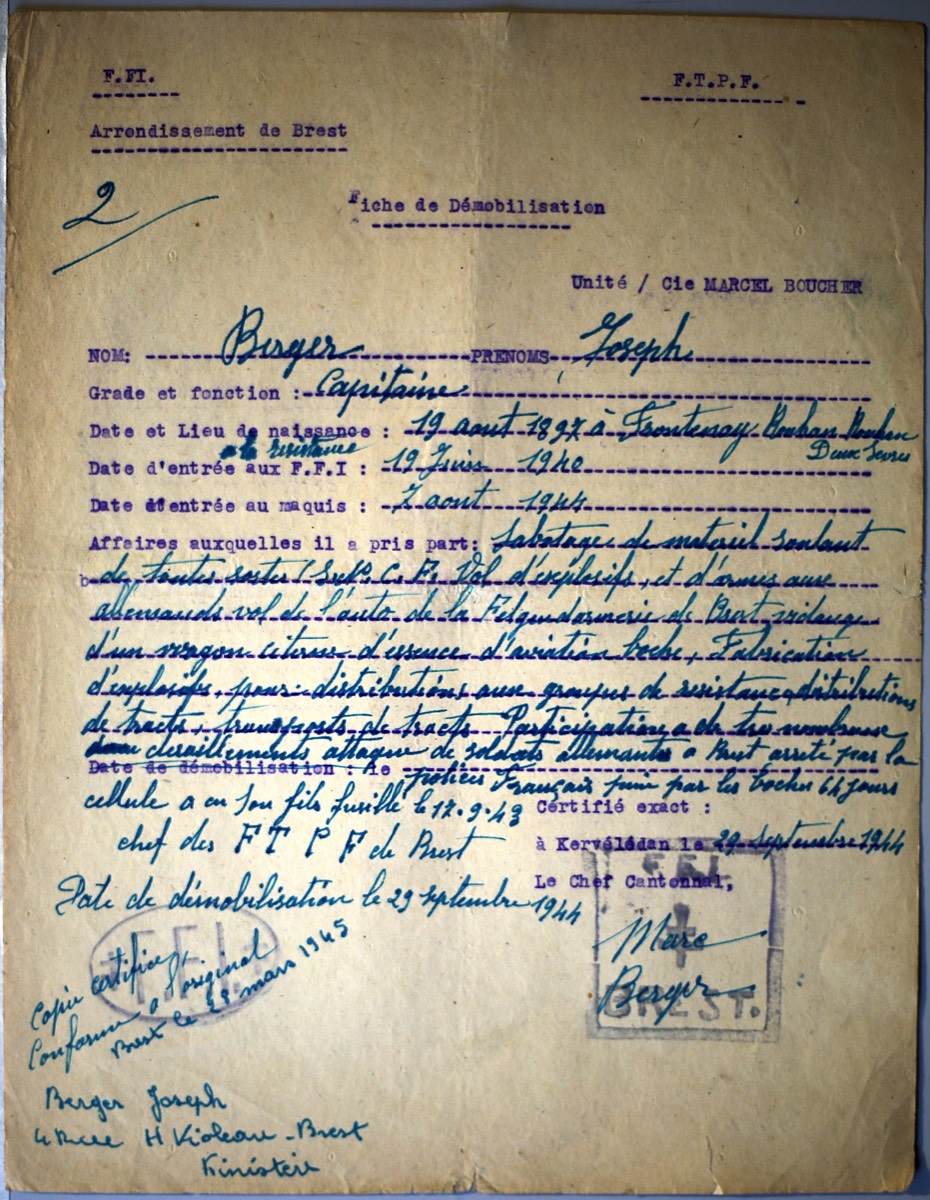 F.FI.
F.T.P.F.
Arrondissement de Brest
2
Fiche de Démobilisation
Unité / Cie MARCEL BOUCHER
NOM: Berger PRENOMS Joseph
Grade et fonction : Capitaine
Date et Lieu de naissance : 19 aout 1897 à Frontenay Rouhan Rouhan
Deux Sevres
a la resistance
Date d'entrée aux F.F.I : 19 Juin 1940
Date d'entrée au maquis : 7 aout 1944
Affaires auxquelles il a pris part: Sabotage de materiel roulant
de toutes sortes S.N. C. F. Vol d'explosifs, et d'armes aux
allemands vol de l'auto de la Felgendarmerie de Brest vidange
d'un wagon citerne d'essence d'aviation boche, Fabrication
d'explosifs, pour distributions aux groupes de resistance, distributions
de tracts, transports de tracts Participation a de tres nombreux
deraillements attaque de soldats allemants a Brest arreté par la
Date de démobilisation : le polices Français puis par les boches 64 jours
cellule a eu son fils fusillé le 17.9.43
Certifié exact :
chef des F T P F de Brest
à Kervélédan le 29 Septembre 1944
Le Chef Cantonnal,
Date de démobilisation le 29 septembre 1944
F.F.I.
F.F.I.
BREST.
Marc
Berger
Copie certifiée
Conforme a l'original
Brest le 28 mars 1945
Berger Joseph
4 Rue H Violeau - Brest
Finistère